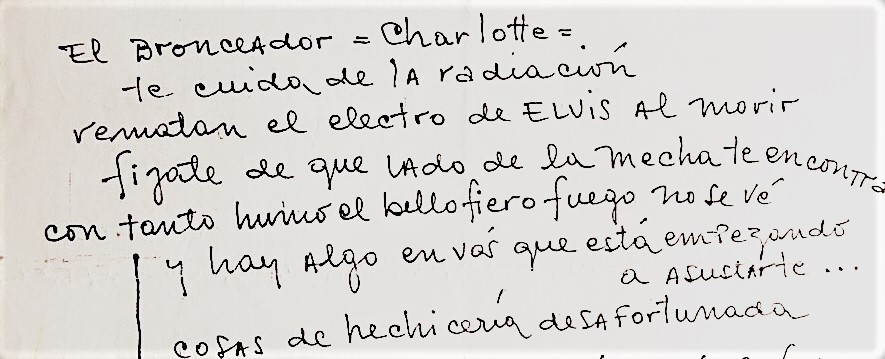 El Bronceador = Charlotte =
te cuida de la radiación
rematan el electro de ELVIS Al morir
fijate de que lado de la mecha te encontrá
con tanto humo el bello fiero fuego no se vé
y hay Algo en vas que está empezando
a Asustarte ...
cosas de hechicería desafortunada